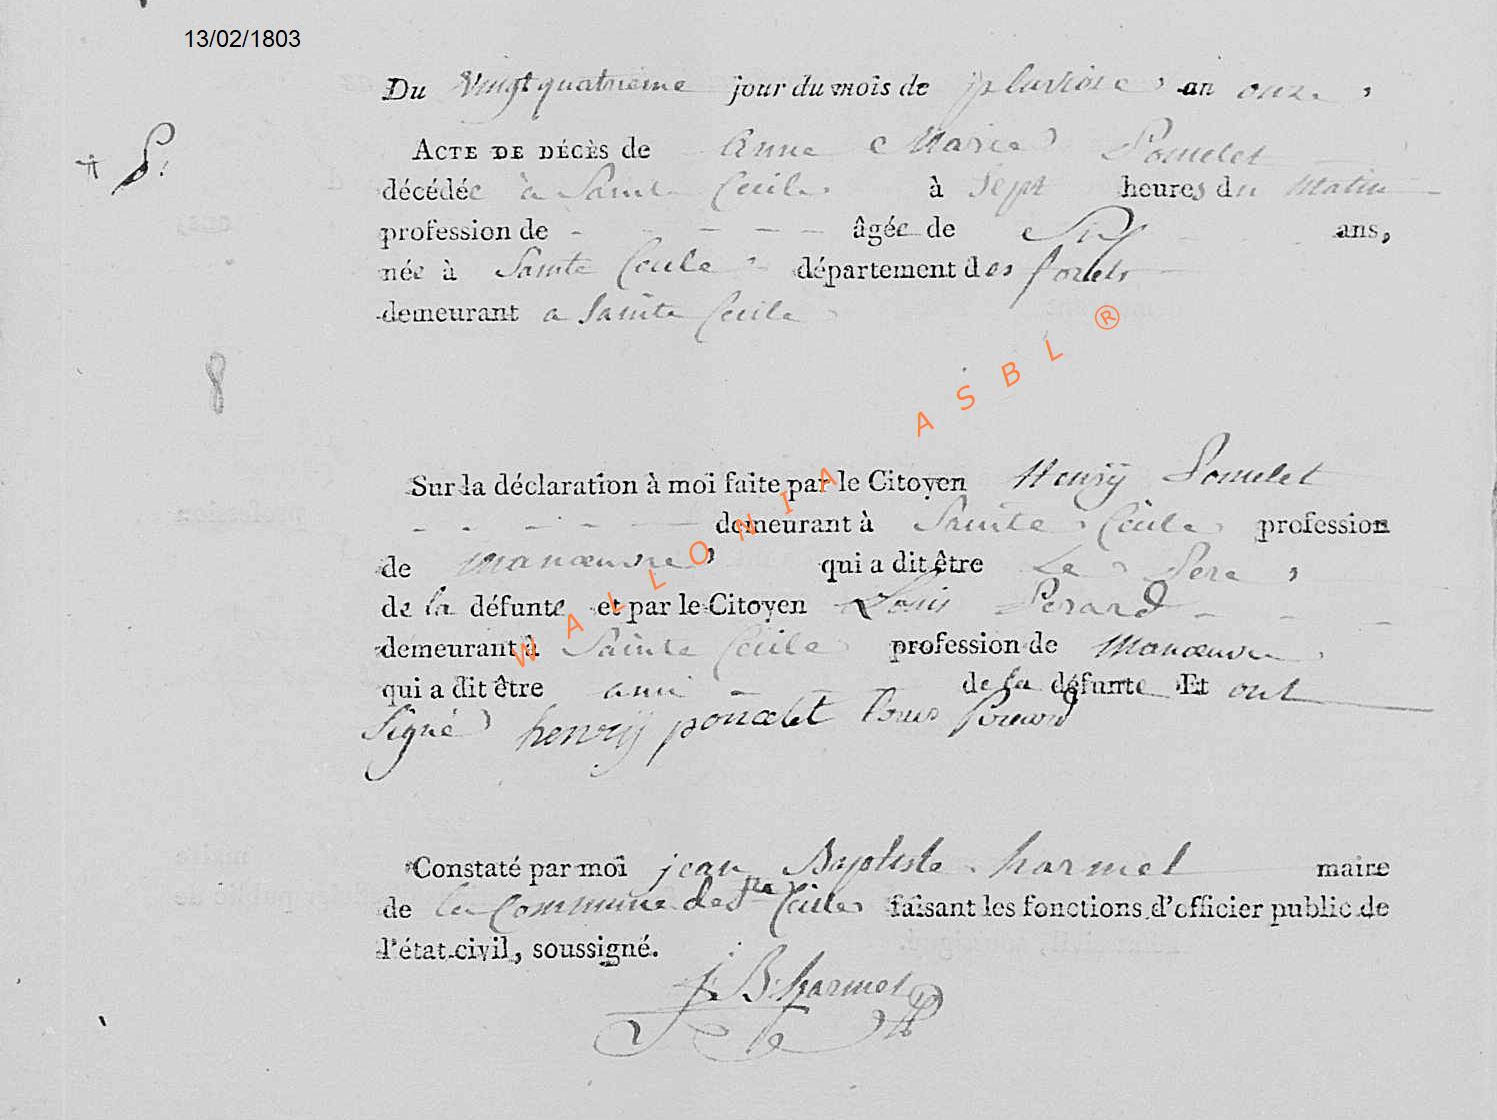 13/02/1803
Du Vingt quatrieme jour du mois de pluviose an onze
ACTE DE DÉCÈS de Anne Marie Poncelet
décédée à Sainte Cecile à Sept heures du Matin
profession de âgée de Six ans,
née à Sainte Cecile département des forets
demeurant a Sainte Cecile
8
Sur la déclaration à moi faite par le Citoyen Henry Poncelet
demeurant à Sainte Cecile profession
de manœuvre qui a dit être Le Pere
de la défunte et par le Citoyen Louis Perard
demeurant à Sainte Cecile profession de Manœuvre
qui a dit être ami de la défunte Et ont
Signé henrÿ poncelet Louis
Constaté par moi jean Baptiste harmel maire
de la Commune de Ste Cecile faisant les fonctions d'officier public de
l'état civil, soussigné.
J. B. harmel
WALLONIA ASBL ®